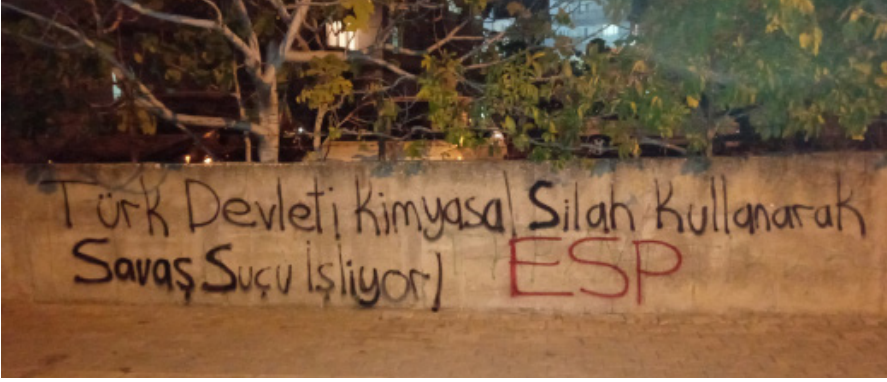 Türk Devleti Kimyasal Silah Kullanarak
Savaş Suçu İşliyor! ESP